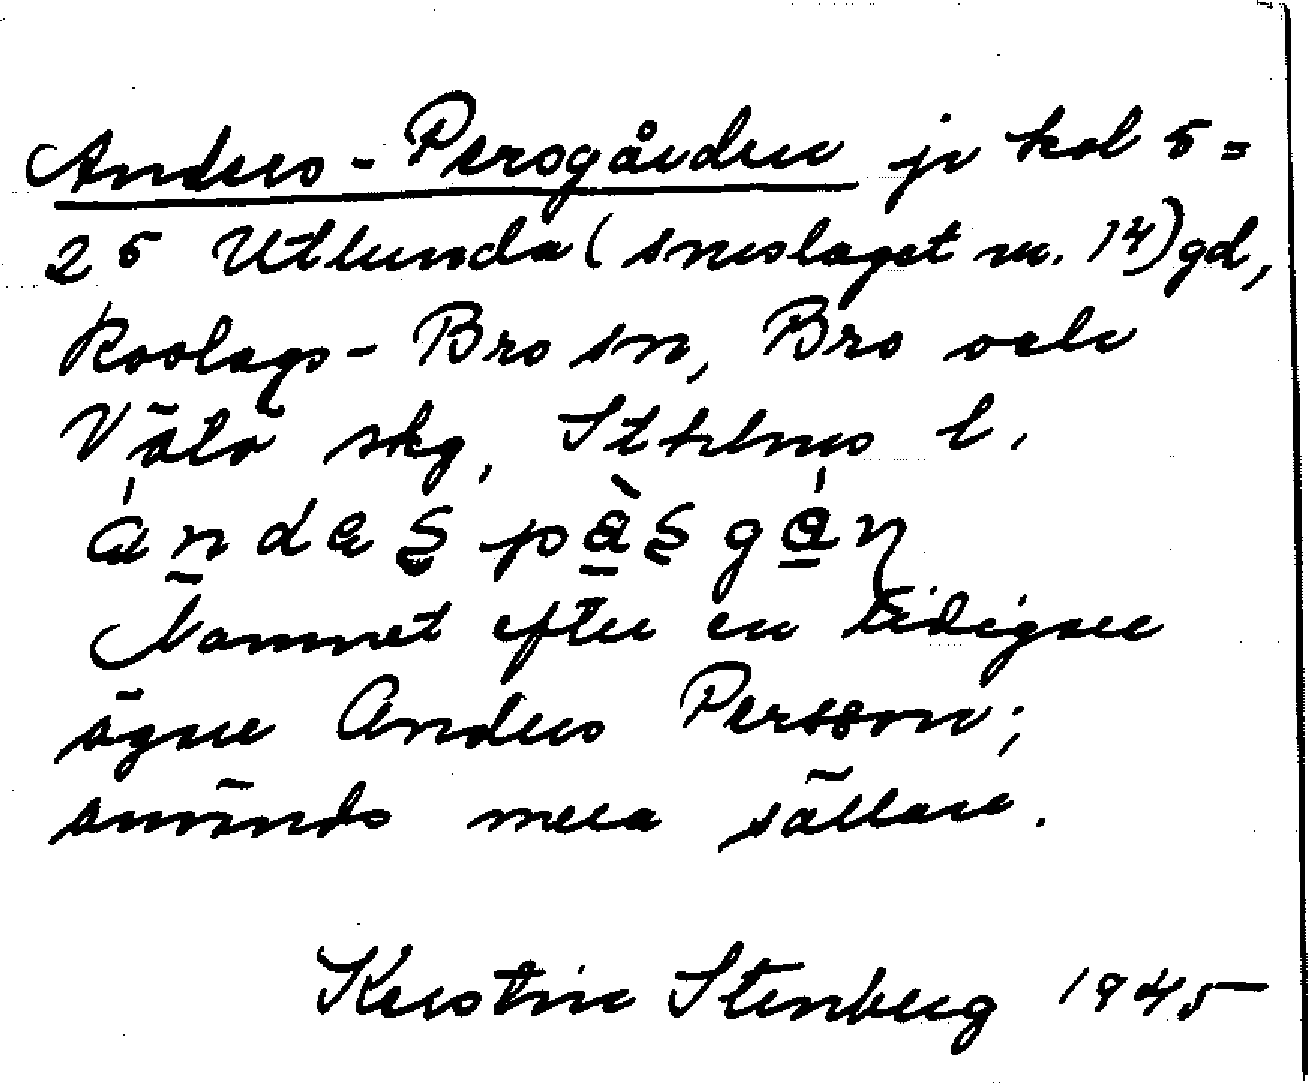 Anders-Persgården jr kol 5 =
25 Utlunda (sneslaget nr. 14) gd,
Roslags-Bro sn, Bro och
Vätö skg, Sthlms l.
Namnet efter en tidigare
ägare Anders Persson;
användes mera sällan.
Kerstin Stenberg 1945